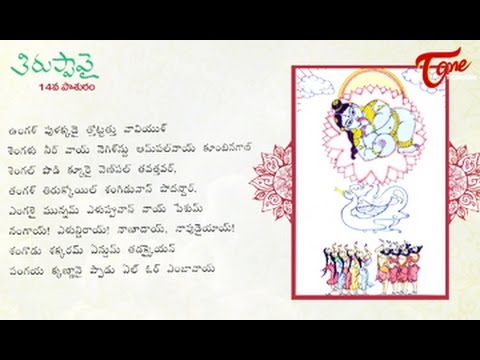 తిరుప్పావై
14వ పాశురం
ఉంగళ్ పుళక్కడై త్తోట్టత్తు వావియుళ్
శెంగళు నీర్ వాయ్ నెగిళ్న్దు ఆమ్బల్వాయ్ కూంబినగాణ్
శెంగల్ పొడి క్కూఱై వెణ్బల్ తవత్తవర్,
తంగళ్ తిరుక్కోయిల్ శంగిడువాన్ పోదన్దార్,
ఎంగళై మున్నమ్ ఎళుప్పువాన్ వాయ్ పేశుమ్
నంగాయ్! ఎళున్దిరాయ్! నాణాదాయ్, నావుడైయాయ్!
శంగొడు శక్కరమ్ ఏన్దుమ్ తడక్కైయన్
పంగయ క్కణ్ణానై ప్పాడు ఏల్ ఓర్ ఎంబావాయ్
Tone